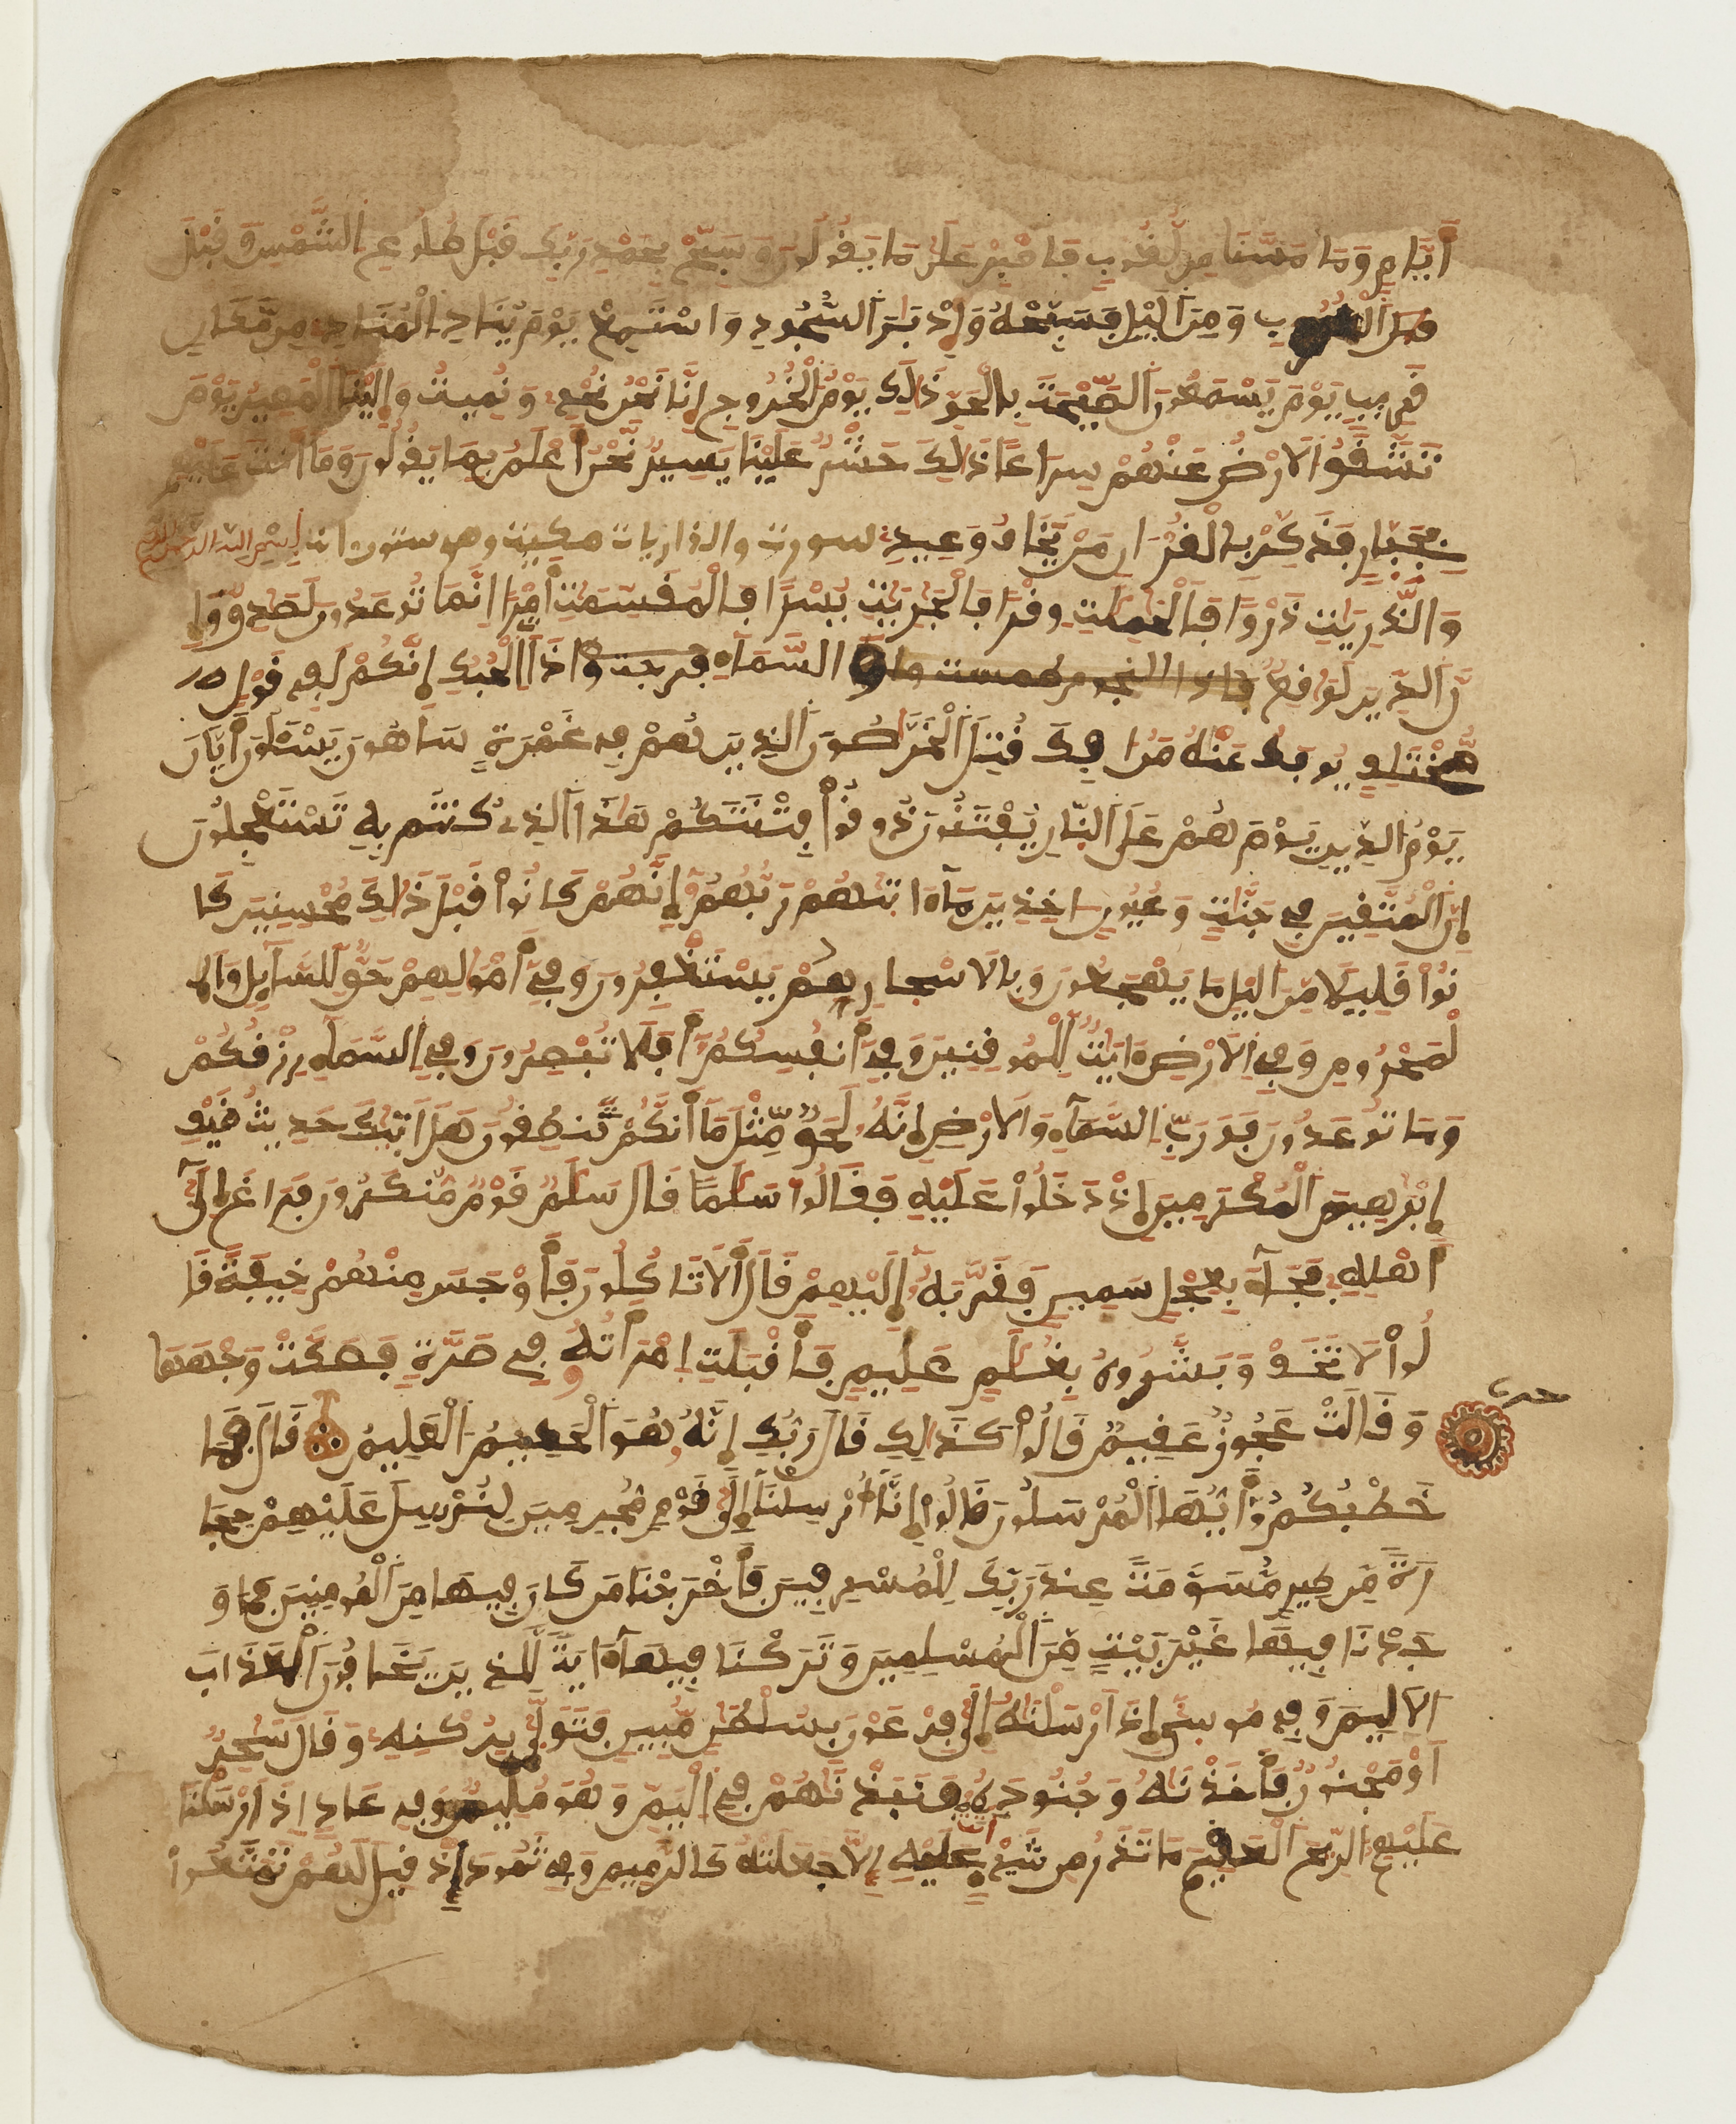 أَيَّامٍ وَمَا مَسَّنَا مِن لُّغُوبٍ فَاصْبِرْ عَلَىٰ مَا يَقُولُونَ وَسَبِّحْ بِحَمْدِ رَبِّكَ قَبْلَ طُلُوعِ الشَّمْسِ وَقَبْلَ
الْغُرُوبِ وَمِنَ الَّيْلِ فَسَبِّحْهُ وَإِدْبَٰرَ السُّجُودِ وَاسْتَمِعْ يَوْمَ يُنَادِ الْمُنَادِ مِن مَّكَانٍ
قَرِيبٍ يَوْمَ يَسْمَعُونَ الصَّيْحَةَ بِالْحَقِّ ذَٰلِكَ يَوْمُ الْخُرُوجِ إِنَّا نَحْنُ نُحْيِۦ وَنُمِيتُ وَإِلَيْنَا الْمَصِيرُ يَوْمَ
تَشَّقَّقُ الَارْضُ عَنْهُمْ سِرَاعًا ذَٰلِكَ حَشْرٌ عَلَيْنَا يَسِيرٌ نَّحْنُ أَعْلَمُ بِمَا يَقُولُونَ وَمَا أَنتَ عَلَيْهِم
بِجَبَّارٍ فَذَكِّرْ بِالْقُرْءَانِ مَنْ يَّخَافُ وَعِيدِ سورت والذاريات مكية وهي ستون ءاية بِسْمِ اللَّهِ الرَّحْمَٰنِ الرَّحِيمِ
وَالذَّٰرِيَٰتِ ذَرْوًا فَالْحَٰمِلَٰتِ وِقْرًا فَالْجَٰرِيَٰتِ يُسْرًا فَالْمُقَسِّمَٰتِ أَمْرًا اِنَّمَا تُوعَدُونَ لَصَادِقٌ وَإِ
نَّ الدِّينَ لَوَٰقِعٌ فإذا النجوم طمست وإذا السَّمَاءِ فرجت وإذا ذَاتِ الْحُبُكِ إِنَّكُمْ لَفِي قَوْلٍ
مُّخْتَلِفٍ يُوفَكُ عَنْهُ مَنُ افِكَ قُتِلَ الْخَرَّٰصُونَ الَّذِينَ هُمْ فِي غَمْرَةٍ سَاهُونَ يَسْـَٔلُونَ أَيَّانَ
يَوْمُ الدِّينِ يَوْمَ هُمْ عَلَى النَّارِ يُفْتَنُونَ ذُوقُواْ فِتْنَتَكُمْ هَٰذَا الَّذِي كُنتُم بِهِ تَسْتَعْجِلُونَ
إِنَّ الْمُتَّقِينَ فِي جَنَّٰتٍ وَعُيُونٍ اخِذِينَ مَآ ءَاتَٰهُمْ رَبُّهُمُۥ إِنَّهُمْ كَانُواْ قَبْلَ ذَٰلِكَ مُحْسِنِينَ كَا
نُواْ قَلِيلًا مِّنَ الَّيْلِ مَا يَهْجَعُونَ وَبِالَاسْحَارِ هُمْ يَسْتَغْفِرُونَ وَفِي أَمْوَٰلِهِمْ حَقٌّ لِّلسَّآئِلِ وَا
لْمَحْرُومِ وَفِي الَارْضِ ءَايَٰتٌ لِّلْمُوقِنِينَ وَفِي أَنفُسِكُمُۥ أَفَلَا تُبْصِرُونَ وَفِي السَّمَآءِ رِزْقُكُمْ
وَمَا تُوعَدُونَ فَوَرَبِّ السَّمَآءِ وَالَارْضِ إِنَّهُۥ لَحَقٌّ مِّثْلَ مَآ أَنَّكُمْ تَنطِقُونَ هَلَ اَتَىٰكَ حَدِيثُ ضَيْفِ
إِبْرَٰهِيمَ الْمُكْرَمِينَ إِذْ دَخَلُواْ عَلَيْهِ فَقَالُواْ سَلَٰمًا قَالَ سَلَٰمٌ قَوْمٌ مُّنكَرُونَ فَرَاغَ إِلَىٰ
أَهْلِهِ فَجَآءَ بِعِجْلٍ سَمِينٍ فَقَرَّبَهُۥ إِلَيْهِمْ قَالَ أَلَا تَاكُلُونَ فَأَوْجَسَ مِنْهُمْ خِيفَةً قَا
لُواْ لَا تَخَفْ وَبَشَّرُوهُ بِغُلَٰمٍ عَلِيمٍ فَأَقْبَلَتِ اِمْرَأَتُهُۥ فِي صَرَّةٍ فَصَكَّتْ وَجْهَهَا
وَقَالَتْ عَجُوزٌ عَقِيمٌ قَالُواْ كَذَٰلِكِ قَالَ رَبُّكِ إِنَّهُۥ هُوَ الْحَكِيمُ الْعَلِيمُ قَالَ فَمَا
حزب
خَطْبُكُمُۥ أَيُّهَا الْمُرْسَلُونَ قَالُواْ إِنَّآ أُرْسِلْنَآ إِلَىٰ قَوْمٍ مُّجْرِمِينَ لِنُرْسِلَ عَلَيْهِمْ حِجَا
رَةً مِّن طِينٍ مُّسَوَّمَةً عِندَ رَبِّكَ لِلْمُسْرِفِينَ فَأَخْرَجْنَا مَن كَانَ فِيهَا مِنَ الْمُومِنِينَ فَمَا وَ
جَدْنَا فِيهَا غَيْرَ بَيْتٍ مِّنَ الْمُسْلِمِينَ وَتَرَكْنَا فِيهَآ ءَايَةً لِّلَّذِينَ يَخَافُونَ الْعَذَابَ
الَالِيمَ وَفِي مُوسَىٰ إِذَ اَرْسَلْنَٰهُ إِلَىٰ فِرْعَوْنَ بِسُلْطَٰنٍ مُّبِينٍ فَتَوَلَّىٰ بِرُكْنِهِ وَقَالَ سَٰحِرٌ
اَوْ مَجْنُونٌ فَأَخَذْنَٰهُ وَجُنُودَهُۥ فَنَبَذْنَٰهُمْ فِي الْيَمِّ وَهُوَ مُلِيمٌ وَفِي عَادٍ اِذَ اَرْسَلْنَا
عَلَيْهِمُ الرِّيحَ الْعَقِيمَ مَا تَذَرُ مِن شَيْءٍ اَتَتْ عَلَيْهِ إِلَّا جَعَلَتْهُ كَالرَّمِيمِ وَفِي ثَمُودَ إِذْ قِيلَ لَهُمْ تَمَتَّعُواْ